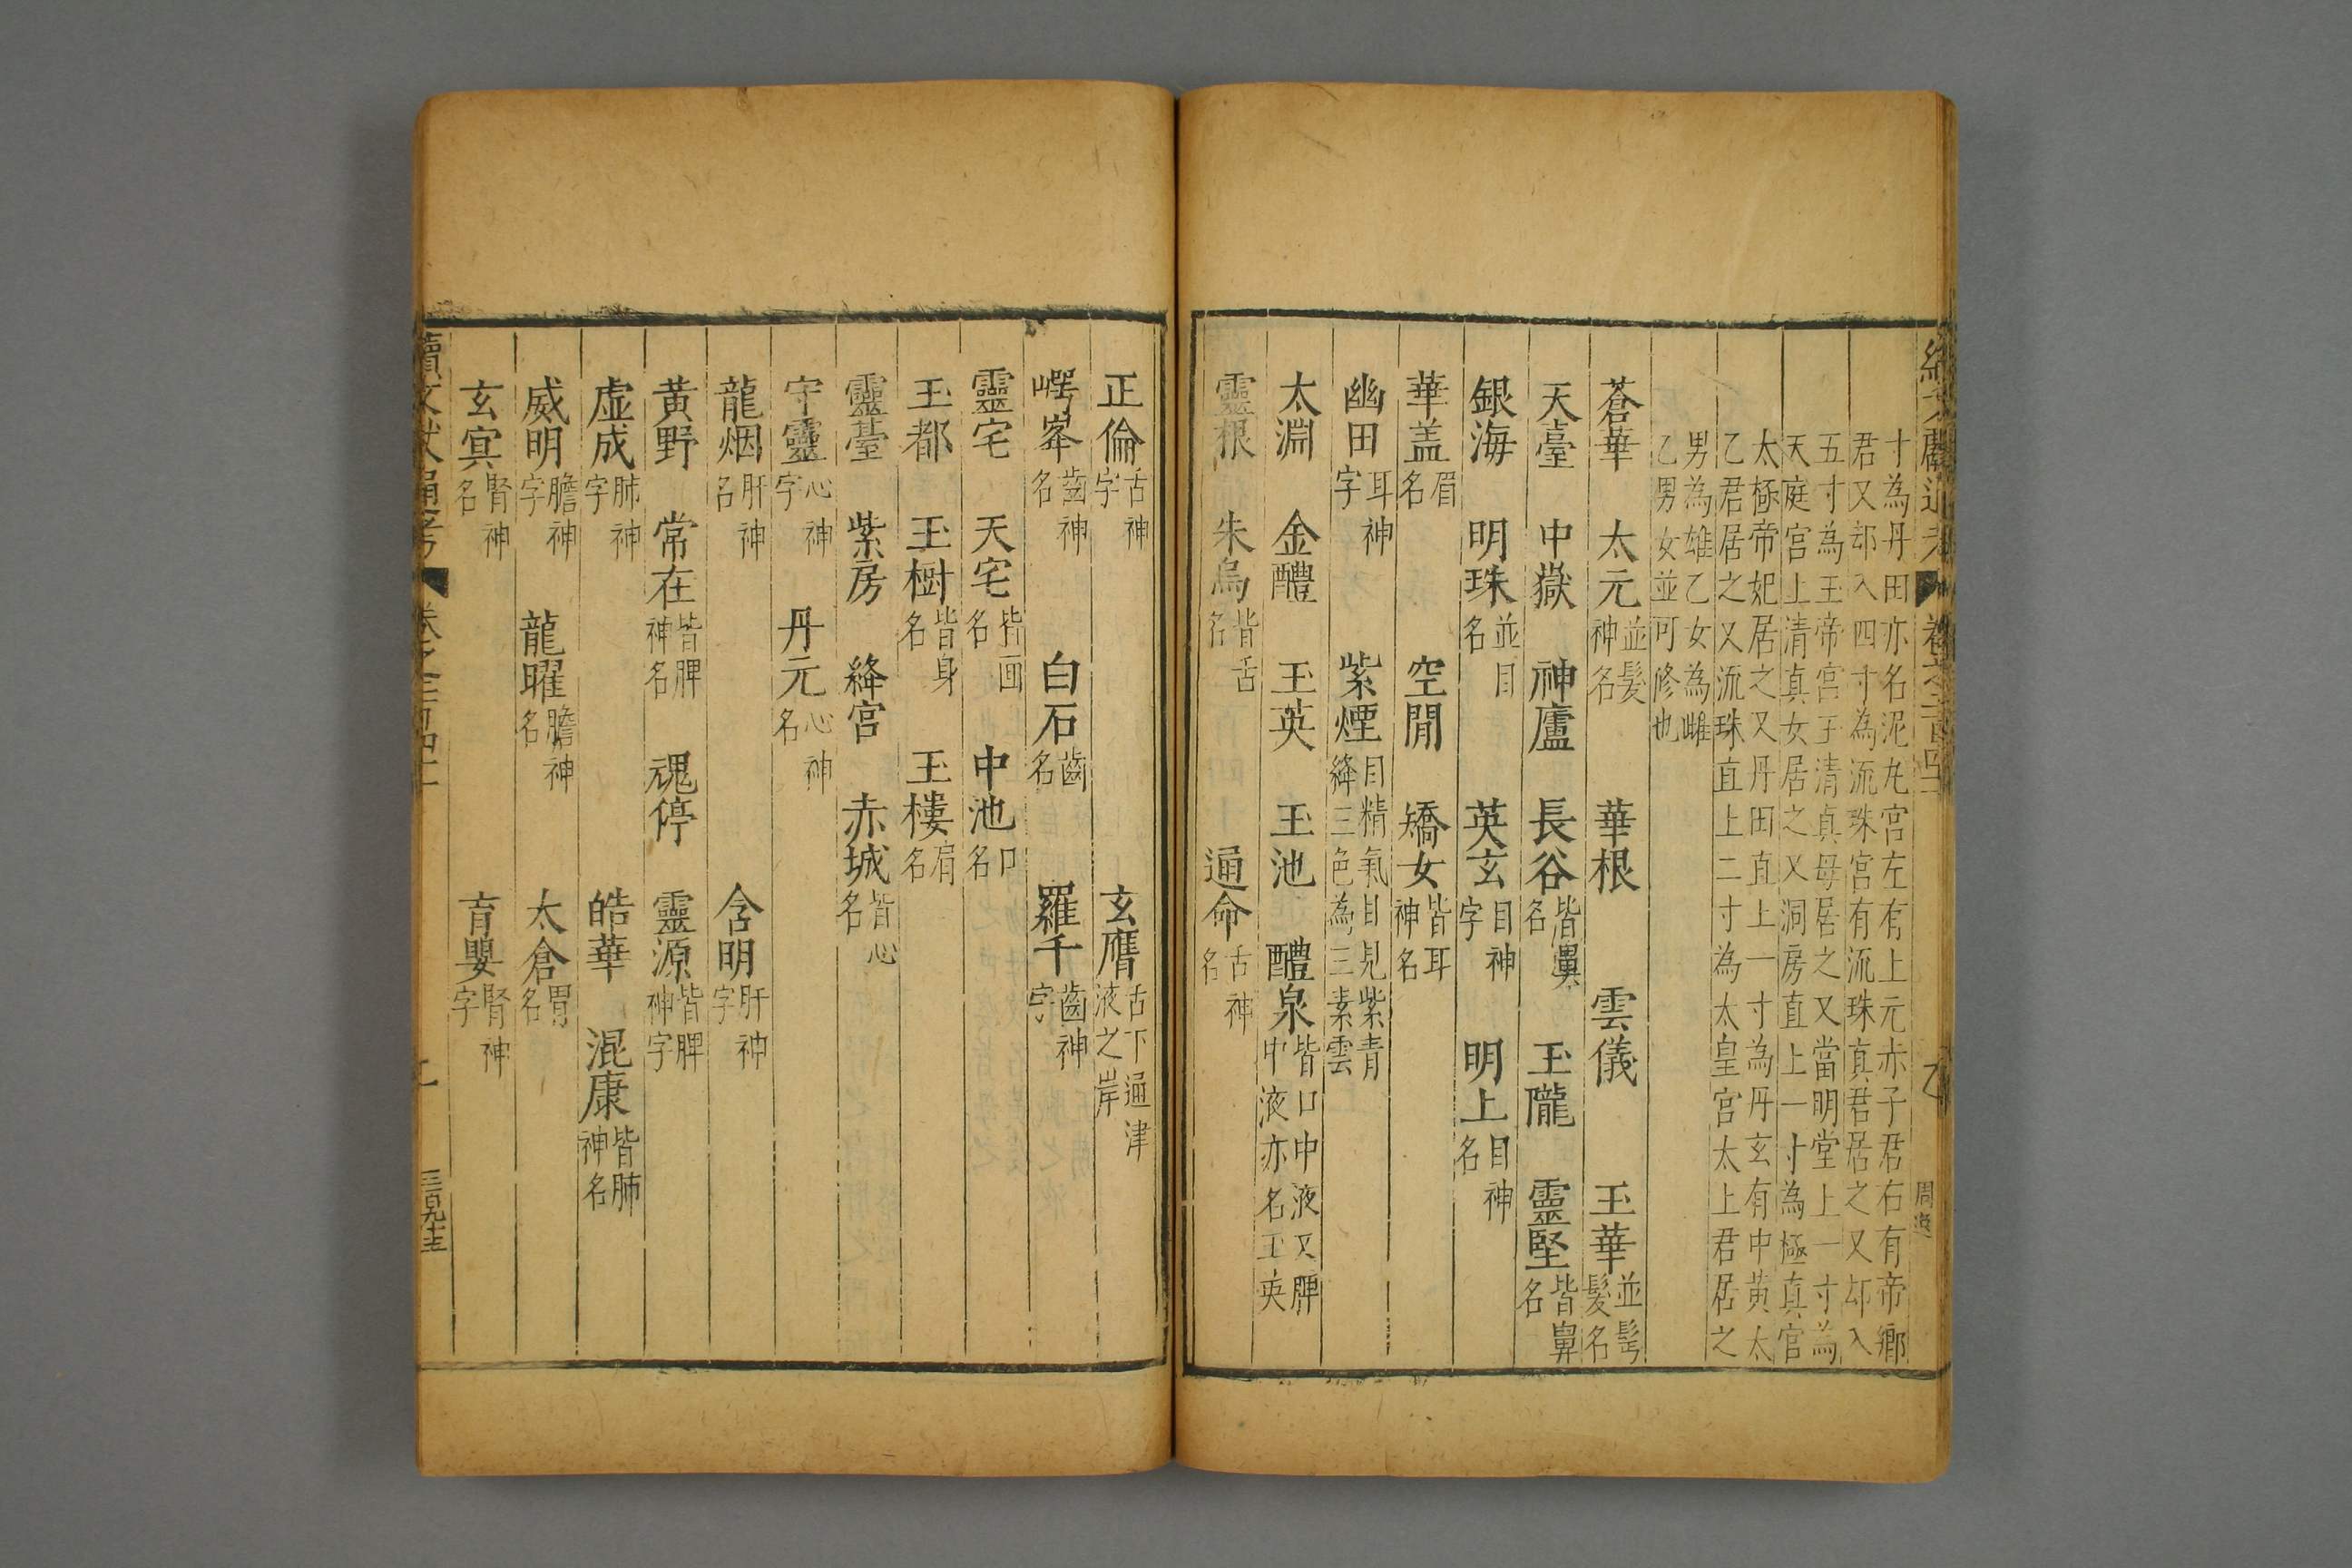 寸為丹田亦名泥丸宮左有上元赤子君右有帝鄉
君又却入四寸為流珠宮有流珠真君居之又却入
五寸為玉帝宮玉清真母居之又當明堂上一寸為
天庭宮上清真女居之又洞房直上一寸為極真宮
太極帝妃居之又丹田直上一寸為丹玄有中黃太
乙君居之又流珠直上二寸為太皇宮太上君居之
男為雄乙女為雌
乙男女並可修也
蒼華 太元並髮神名 華根 雲儀 玉華並髩髮名
天臺 中獄 神廬 長谷皆鼻名 玉隴 靈堅皆鼻名
銀海 明珠並目名 英玄目神字 明上目神名
華盖眉名 空閒 矯女皆耳神名
幽田耳神字 紫煙目精氣目見紫青絳三色為三素雲
太淵 金醴 玉英 玉池 醴泉皆口中液又脾中液亦名玉英
靈根 朱鳥皆舌名 通命舌神名
正倫舌神字 玄膺舌下通津液之岸
崿峯齒神名 白石齒名 羅千齒神字
靈宅 天宅皆面名 中池口名
玉都 玉樹皆身名 玉樓肩名
靈臺 紫房 絳宮 赤城皆心名
守靈心神字 丹元心神名
龍烟肝神名 含明肝神字
黃野 常在皆脾神名 魂停 靈源皆脾神字
虛成肺神字 皓華 混康皆肺神名
威明膽神字 龍曜膽神名 太倉胃名
玄冥腎神名 育嬰腎神字
續文獻通考 卷之二百四十二